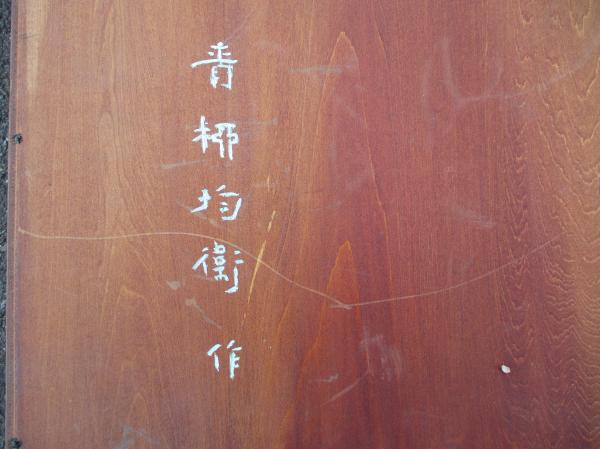 青栁均衛作